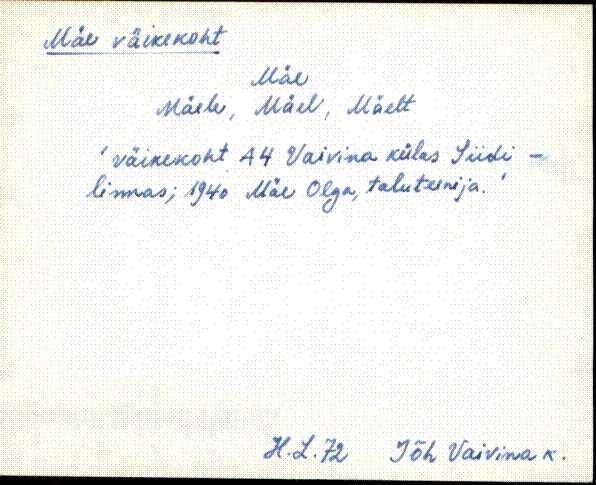 Mäe väikekoht
Mäe
Mäele, Mäel, Mäelt
'väikekoht A4 Vaivina külas Siidi -
linnas; 1940 Mäe Olga, taluteenija.'
H.L.72 Jõh Vaivina k.